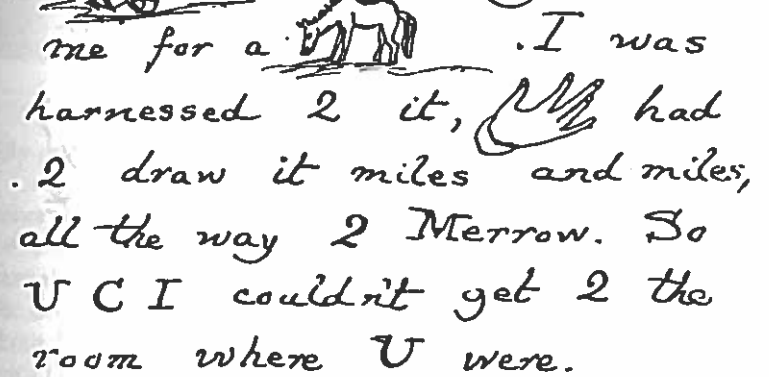 me for a . I was
harnessed 2 it, had
. 2 draw it miles and miles,
all the way 2 Merrow. So
U C I couldn't get 2 the
room where U were.